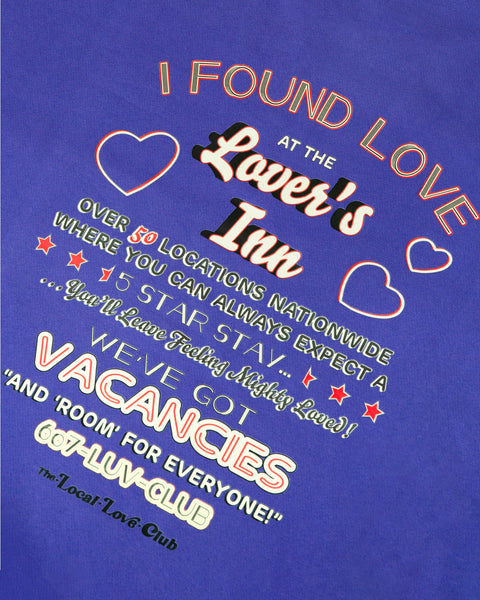 I FOUND LOVE
AT THE
Lover's
Inn
OVER 50 LOCATIONS NATIONWIDE
WHERE YOU CAN ALWAYS EXPECT A
5 STAR STAY...
...You'll Leave Feeling Mighty Loved!
WE'VE GOT
VACANCIES
"AND 'ROOM' FOR EVERYONE!"
607-LUV-CLUB
The·Local·Love·Club